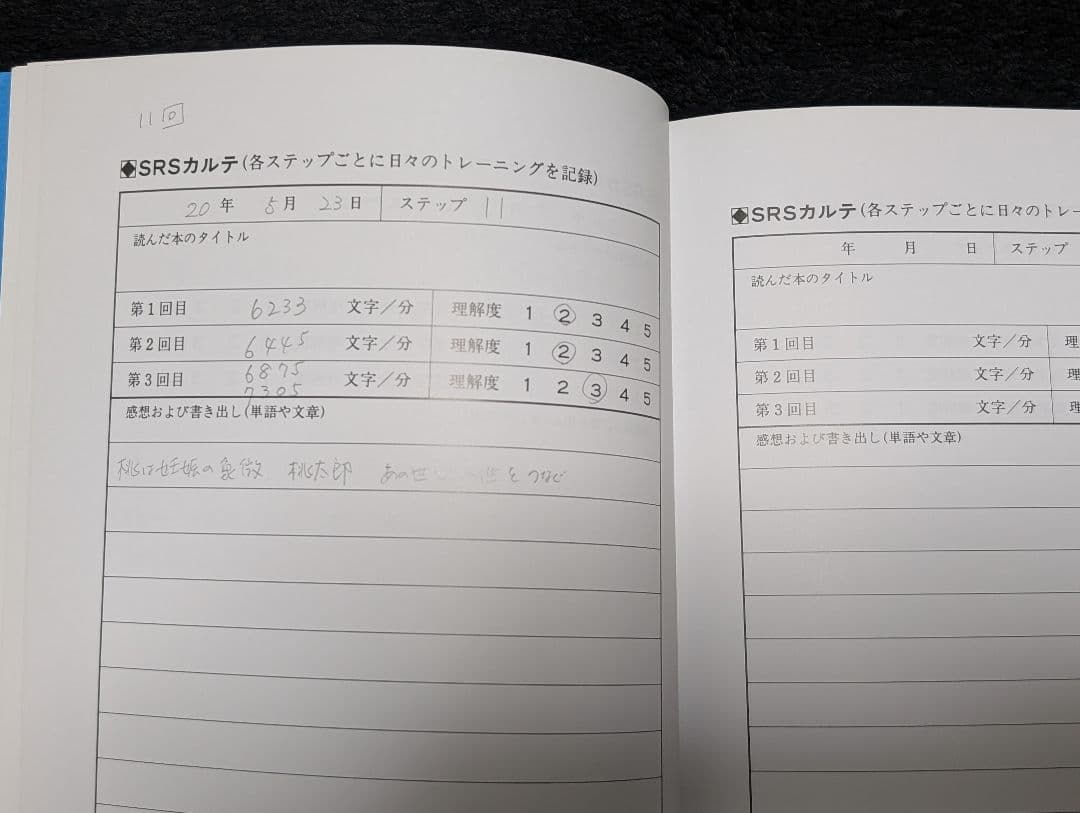 11回
◆SRSカルテ(各ステップごとに日々のトレーニングを記録)
20年 5月 23日 ステップ 11
読んだ本のタイトル
第1回目 6233 文字/分 理解度 1 2 3 4 5
第2回目 6445 文字/分 理解度 1 2 3 4 5
第3回目 6875 文字/分 理解度 1 2 3 4 5
7305
感想および書き出し(単語や文章)
桃は妊娠の象徴 桃太郎 あの世 をつなぐ
◆SRSカルテ(各ステップごとに日々のトレー
年 月 日 ステップ
読んだ本のタイトル
第1回目 文字/分 理
第2回目 文字/分 理
第3回目 文字/分 理
感想および書き出し(単語や文章)